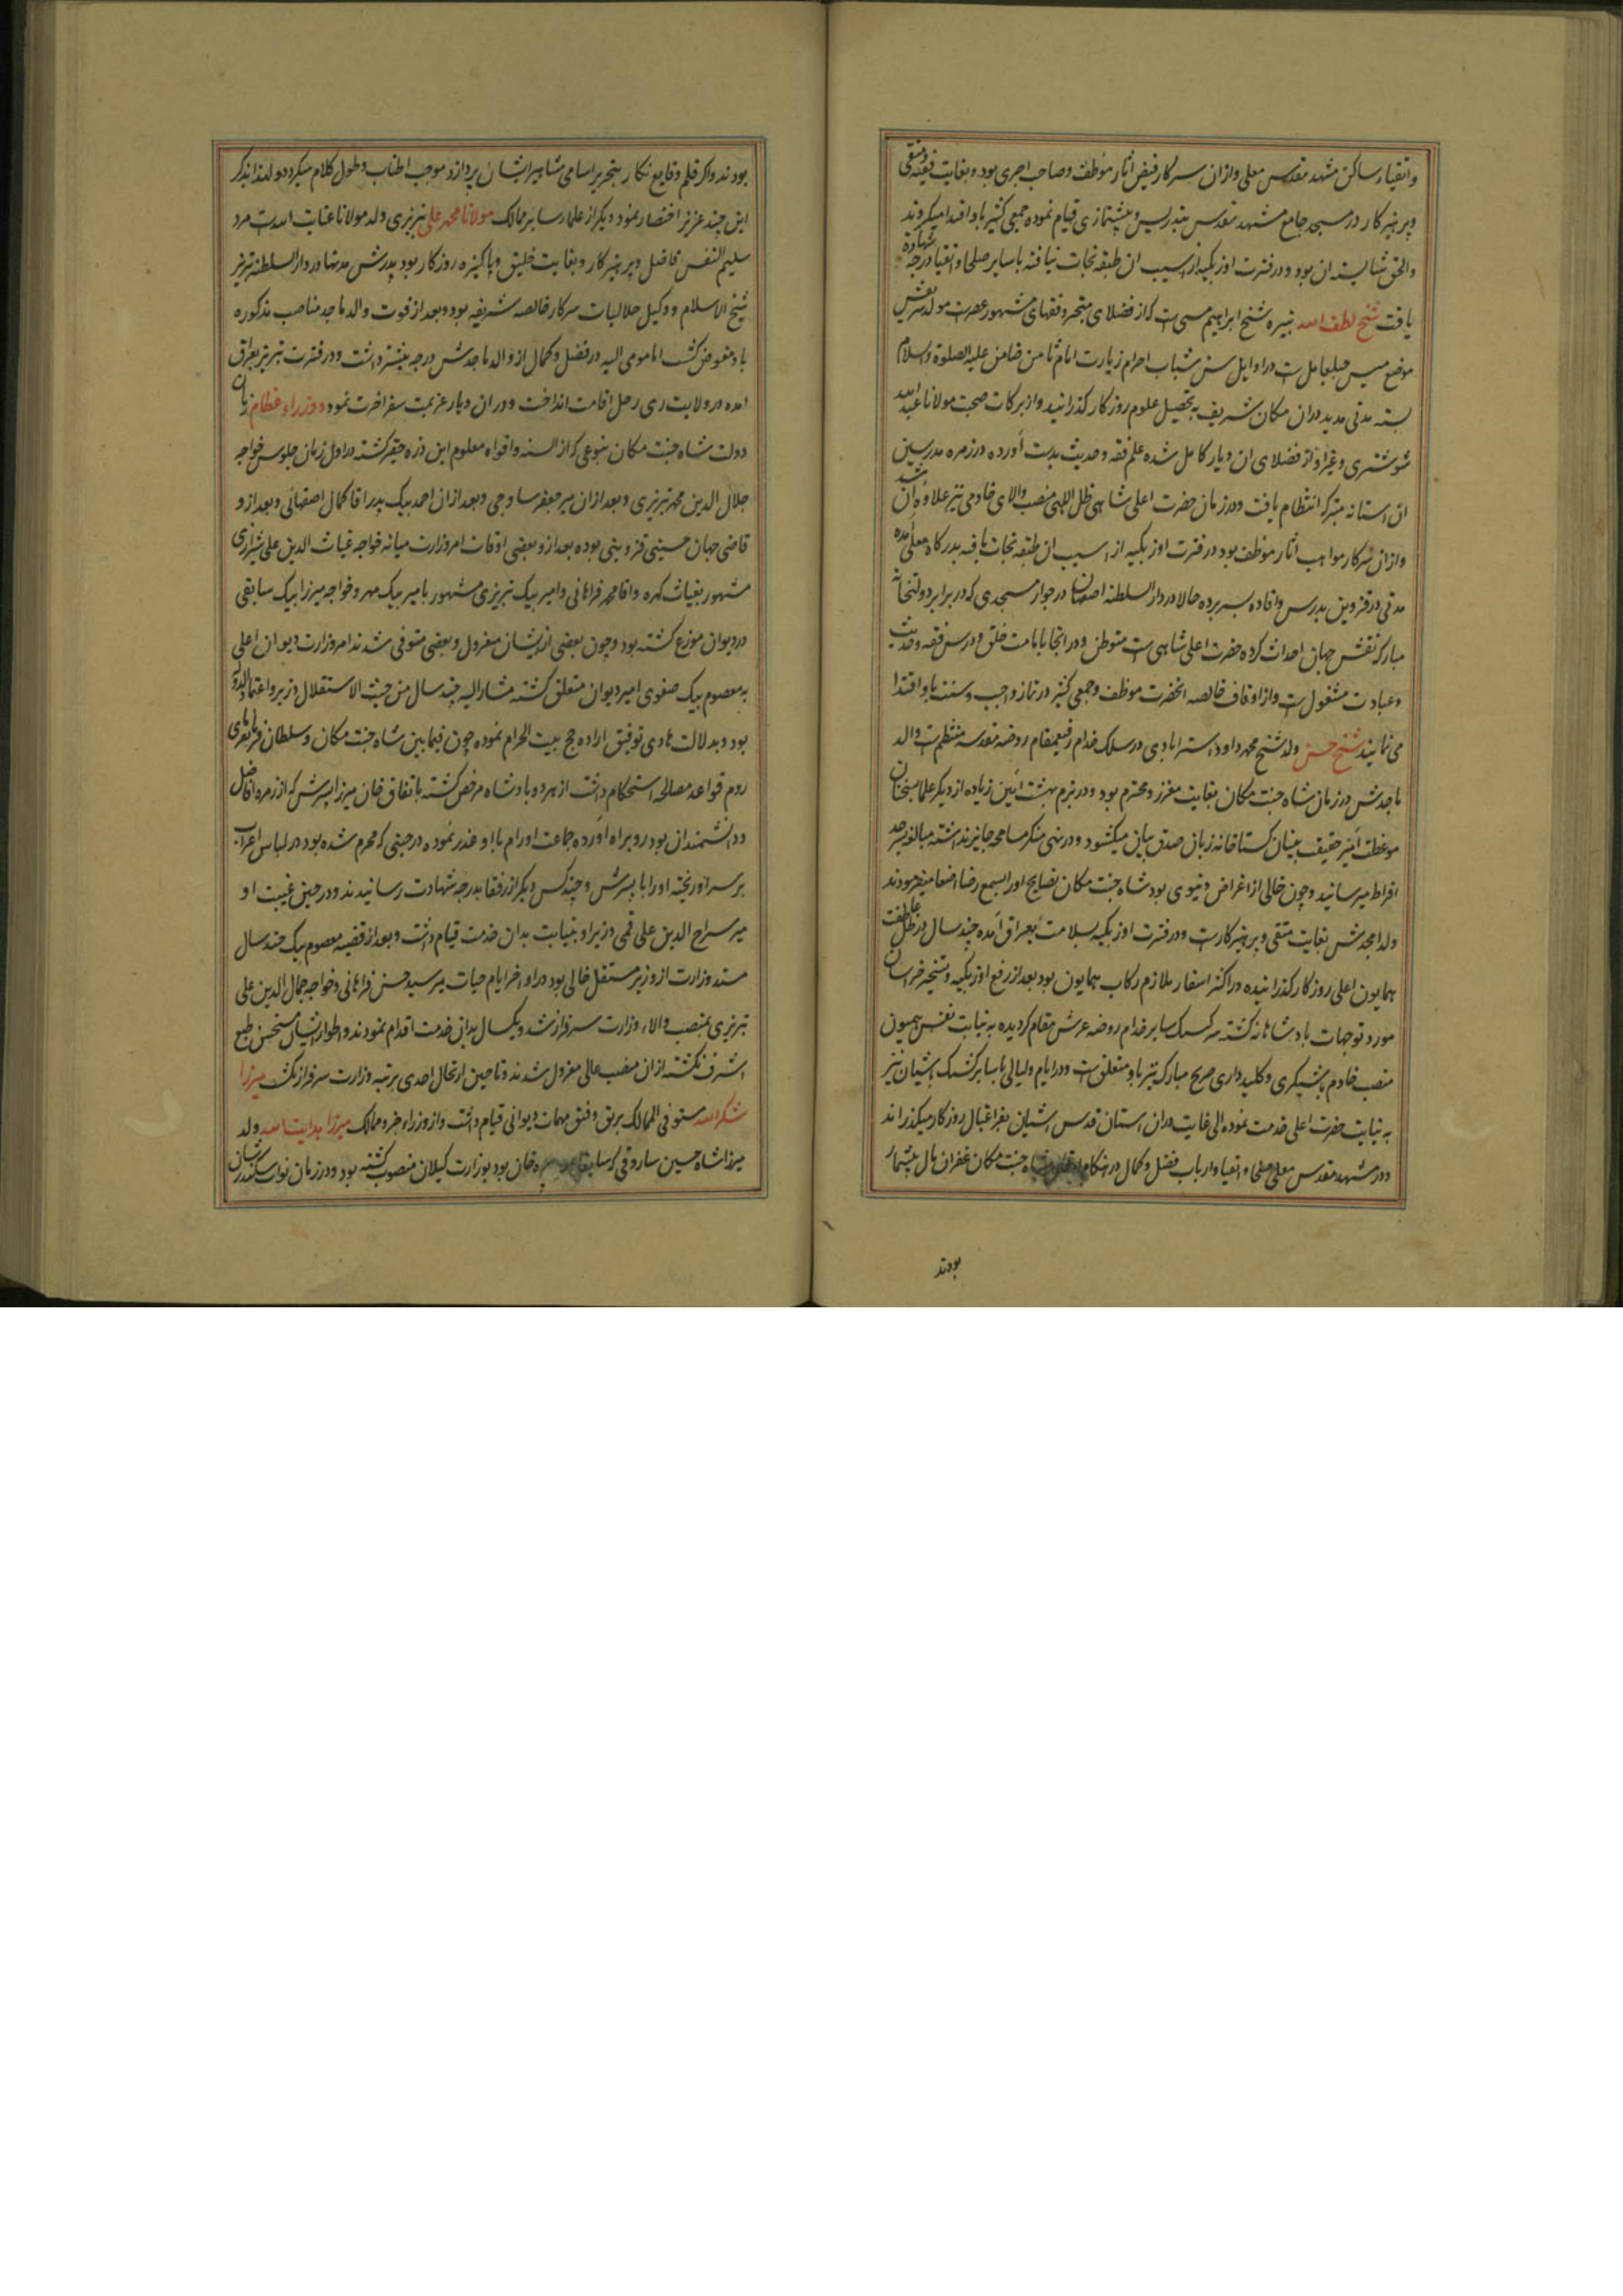 واتقیاء ساکن مشهد مقدس معلی وازان سرکار فیض آثار موظف وصاحب اجری بود وبغایت فقیه ومتقی
وپرهیزکار در مسجد جامع مشهد مقدس بتدریس وپیشنمازی قیام نموده جمعی کثیر باو اقتدا میکردند
والحق شایسته آن بود ودر فترت اوزبکیه از آسیب ان طبقه نجات نیافته باسایر صلحا واتقیا درجه شهادة
یافت شیخ لطف الله نبیره شیخ ابراهیم میسی است که از فضلای متبحر وفقهای مشهور عصرست مولد شریفش
موضع میس جبل عامل ست در اوایل سن شباب احرام زیارت امام ثامن ضامن علیه الصلوة والسلام
بسته مدتی مدید دران مکان شریف بتحصیل علوم روزکار کذرانید واز برکات صحبت مولانا عبد الله
شوشتری وغیر او از فضلای ان دیار کامل شده علم فقه وحدیث بدست آورده در زمره مدرسین
ان استانه متبرکه انتظام یافت ودر زمان حضرت اعلی شاهی ظل اللهی منصب والای خادمی نیز علاوه ان شد
وازان سرکار مواهب آثار موظف بود در فترت اوزبکیه از آسیب ان طبقه نجات یافته بدرکاه معلی آمده
مدتی در قزوین بدرس وافاده بسر برده حالا در دار السلطنه اصفهان در جوار مسجدی که در برابر دولتخانه
مبارکه نقش جهان احداث کرده حضرت اعلی شاهی ست متوطن ودر انجا بامامت خلق ودرس فقه وحدیث
وعبادت مشغول ست واز اوقاف خالصه انحضرت موظف وجمعی کثیر در نماز واجب وسنت باو اقتدا
می نمایند شیخ حسن ولد شیخ محمد داود استرابادی در سلک خدام رفیع مقام روضه مقدسه منتظم ست والد
ماجدش در زمان شاه جنت مکان بغایت معزز ومحترم بود ودر بزم بهشت آیین زیاده از دیکر علما بسخنان
موعظت آمیز حقیقت بنیان کستاخانه زبان صدق بیان میکشود ودر نهی منکر مسامحه جایز نداشته مبالغه بسرحد
افراط میرسانید وچون خالی از اغراض دنیوی بود شاه جنت مکان نصایح او را بسمع رضا اصغا میفرمودند
ولد امجدش بغایت متقی وپرهیزکارست ودر فترت اوزبکیه بسلامت بعراق آمده چند سال در ظل عاطفت
همایون اعلی روزکار کذرانیده در اکثر اسفار ملازم رکاب همایون بود بعد از رفع اوزبکیه وتسخیر خراسان
مورد توجهات بادشاهانه کشته سرکشیک سایر خدام روضه عرش مقام کردیده به نیابت نفس همیون
منصب خادم باشیکری وکلیدداری ضریح مبارک نیز باو متعلق ست ودر ایام ولیالی باسایر کشیک باشیان نیز
به نیابت حضرت اعلی خدمت نموده الی غایت دران استان قدس اشیان بفراغبال روزکار میکذراند
ودر مشهد مقدس معلی صلحاء واتقیا وارباب فضل وکمال در هنکام شاه جنت مکان غفران مال بیشمار
بودند
بودند واکر قلم وقایع نکار بتحریر اسامی مشاهیر ایشان پردازد موجب اطناب وطول کلام میکردد ولهذا بذکر
این چند عزیز اختصار نمود ودیکر از علماء سایر ممالک مولانا محمد علی تبریزی ولد مولانا عنایت الله ست مرد
سلیم النفس فاضل وپرهیزکار وبغایت خلیق وپاکیزه روزکار بود پدرش مدتها در دار السلطنه تبریز
شیخ الاسلام ووکیل حلالیات سرکار خالصه شریفه بود وبعد از فوت والد ماجد مناصب مذکوره
باو مفوض کشت اما مومی الیه در فضل وکمال از والد ماجدش درجه بیشتر داشت ودر فترت تبریز بعراق
آمده در ولایت ری رحل اقامت انداخت ودران دیار عزیمت سفر آخرت نمود ووزراء عظام زمان
دولت شاه جنت مکان بنوعی که از السنه وافواه معلوم این ذره حقیر کشته در اول زمان جلوس خواجه
جلال الدین محمد تبریزی وبعد ازان میر جعفر ساوجی وبعد ازان احمد بیک پدر اقا کمال اصفهانی وبعد ازو
قاضی جهان حسینی قزوینی بوده بعد ازو بعضی اوقات امر وزارت میانه خواجه غیاث الدین علی شیرازی
مشهور بغیاث کهره واقا محمد فراهانی وامیر بیک تبریزی مشهور بامیر بیک مهر وخواجه میرزا بیک سابقی
در دیوان موزع کشته بود وچون بعضی از ایشان معزول وبعضی متوفی شدند امر وزارت دیوان اعلی
به معصوم بیک صفوی امیر دیوان متعلق کشته مشار الیه چند سال من حیث الاستقلال وزیر واعتماد الدوله
بود وبدلالت هادی توفیق اراده حج بیت الحرام نموده چون فیما بین شاه جنت مکان وسلطان فرمانفرمای
روم قواعد مصالحه استحکام داشت از هر دو بادشاه مرخص کشته باتفاق خان میرزا پسرش که از زمره افاضل
ودانشمندان بود رو براه آورده جماعت اورام با او غدر نموده در حینی که محرم شده بود در لباس اعراب
بر سر او ریخته او را با پسرش وچند کس دیکر از رفقا بدرجه شهادت رسانیدند ودر حین غیبت او
میر سراج الدین علی قمی وزیر او به نیابت بدان خدمت قیام داشت وبعد از قضیه معصوم بیک چند سال
مسند وزارت از وزیر مستقل خالی بود در اواخر ایام حیات میر سید حسن فراهانی وخواجه جمال الدین علی
تبریزی بمنصب والاء وزارت سرفراز شد ویکسال بدان خدمت اقدام نمودند واطوار ایشان مستحسن طبع
اشرف نکشته ازان منصب عالی معزول شدند وتا حین ارتحال احدی برتبه وزارت سرفراز نکشت میرزا
شکر الله مستوفی الممالک برتق وفتق مهمات دیوانی قیام داشت واز وزراء جزو ممالک میرزا هدایت الله ولد
میرزا شاه حسین ساروقی که سابقا خان بود بوزارت کیلان منصوب کشته بود ودر زمان نواب سکندر شان